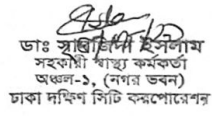 ডাঃ ইসলাম
সহকারী স্বাস্থ্য কর্মকর্তা
অঞ্চল-১, (নগর ভবন)
ঢাকা দক্ষিণ সিটি করপোরেশন